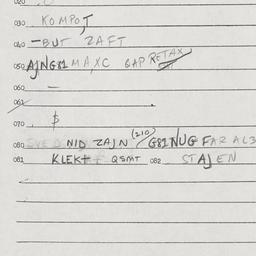 020
030 KOMPOŢ
040 -BUT ZAFT
050 AJNG81 MAXC GAP RETAX
060 -
061
070 $
080 NID ZAJN (210) G81NUG FAR AL3
081 KLEKT QSMT 082 STAJEN